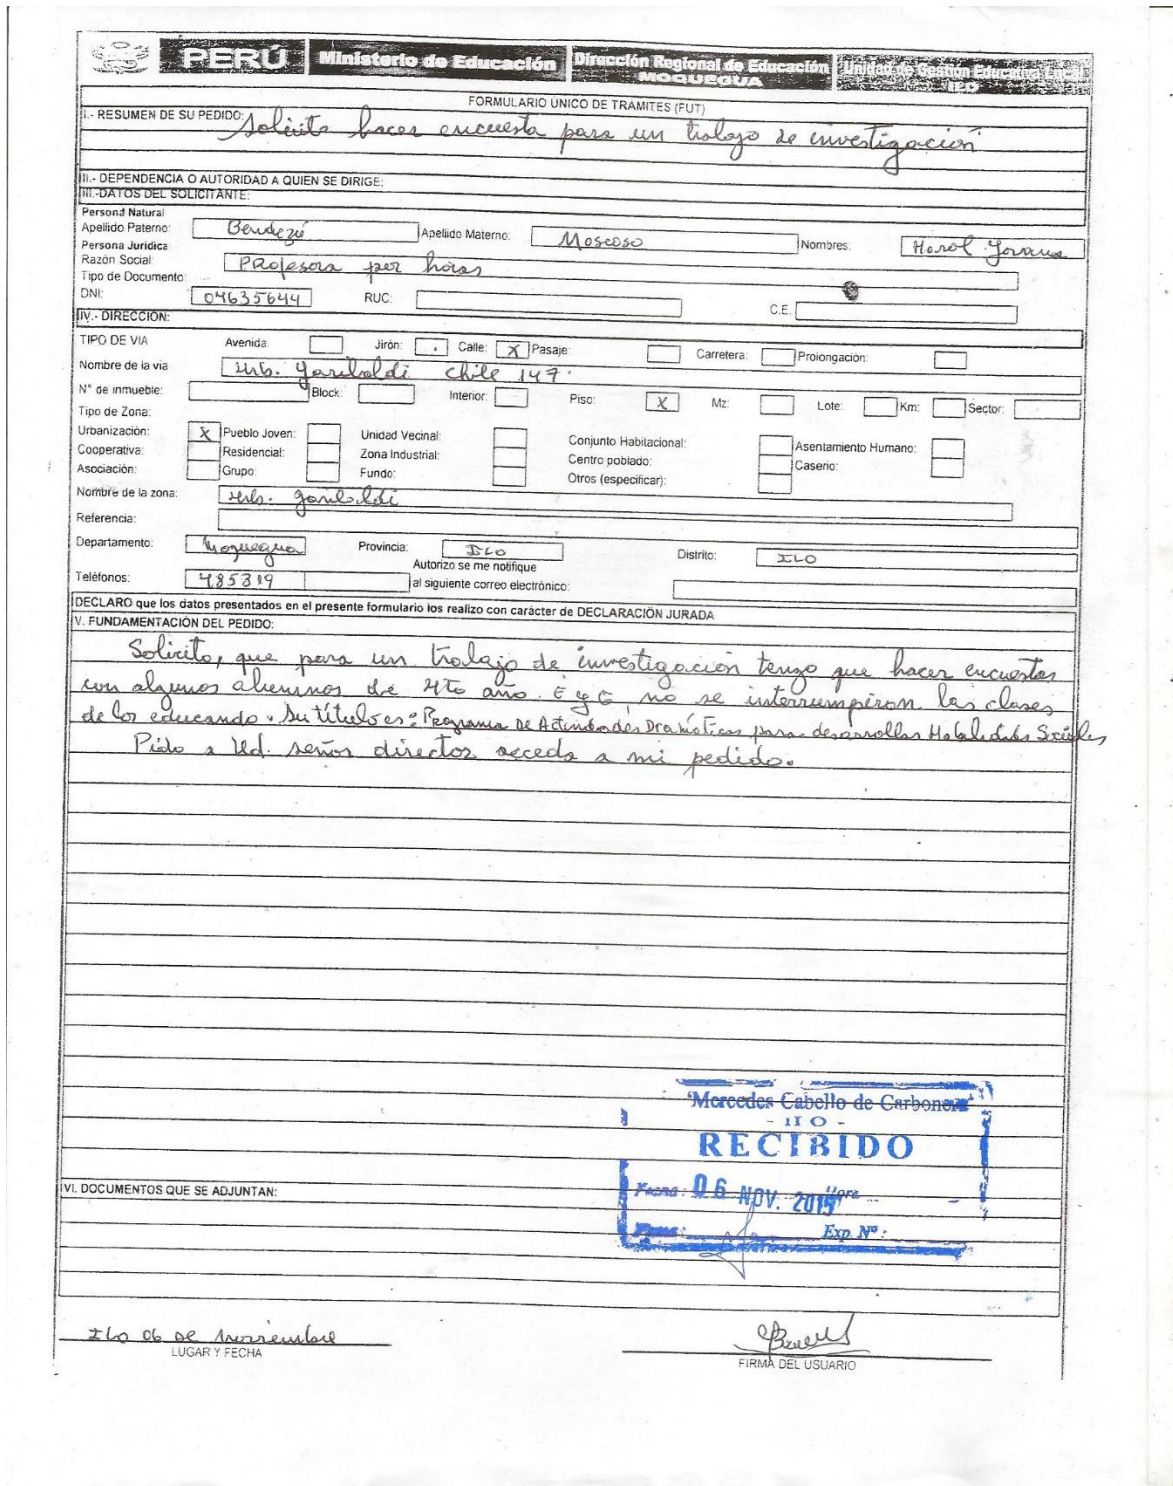 PERÚ Ministerio de Educación Dirección Regional de Educación MOQUEGUA Unidad de Gestión Educativa Local ILO
FORMULARIO ÚNICO DE TRAMITES (FUT)
I.- RESUMEN DE SU PEDIDO: Solicito hacer encuesta para un trabajo de investigación
II.- DEPENDENCIA O AUTORIDAD A QUIEN SE DIRIGE:
III.-DATOS DEL SOLICITANTE:
Persona Natural
Apellido Paterno: Bendezú Apellido Materno: Moscoso Nombres: Harol
Persona Juridica
Razón Social: Profesora por horas
Tipo de Documento:
DNI: 04635644 RUC: C.E.
IV.- DIRECCIÓN:
TIPO DE VIA Avenida: Jirón: . Calle: X Pasaje: Carretera: Prolongación:
Nombre de la via Urb. Garibaldi Chile 147.
N° de inmueble: Block: Interior: Piso: X Mz: Lote: Km: Sector:
Tipo de Zona:
Urbanización: X Pueblo Joven: Unidad Vecinal: Conjunto Habitacional: Asentamiento Humano:
Cooperativa: Residencial: Zona Industrial: Centro poblado: Caserio:
Asociación: Grupo: Fundo: Otros (especificar):
Nombre de la zona: Urb. Garibaldi
Referencia:
Departamento: Moquegua Provincia: ILO Distrito: ILO
Autorizo se me notifique
Teléfonos: 485319 al siguiente correo electrónico:
DECLARO que los datos presentados en el presente formulario los realizo con carácter de DECLARACIÓN JURADA
V. FUNDAMENTACIÓN DEL PEDIDO:
Solicito, que para un trabajo de investigación tengo que hacer encuestas
con algunos alumnos de 4to año E y G, no se interrumpiran las clases
de los educando. Su título es: Programa de Actividades Dramáticas para desarrollar Habilidades Sociales
Pido a Ud. señor director acceda a mi pedido.
"Mercedes Cabello de Carbonera"
- ILO -
RECIBIDO
Fecha: 06 NOV. 2015 Hora
Firma: Exp. Nº:
VI. DOCUMENTOS QUE SE ADJUNTAN:
Ilo 06 de Noviembre
LUGAR Y FECHA
FIRMA DEL USUARIO